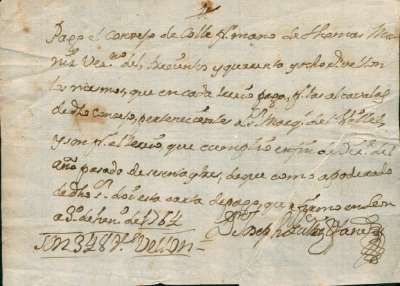 Pagó el Conzejo de Colle pr. mano de thomas
Vezº. del, trecientos y quarenta y ocho Rs. vellon
los mismos, que en cada tercio paga, pr. las alcavalas
de dho conzejo, pertenecientes a el Sr. Marqs. de
y son pr. el tercio, que cumplio en fin de Dre. del
año pasado de sesenta y tres, de que como apoderado
de dho Sr. doi esta carta de pago, que firmo en Leon
a 3 de henº. de 1764
Dn. Joseph
Son 348 Rs. Vellon